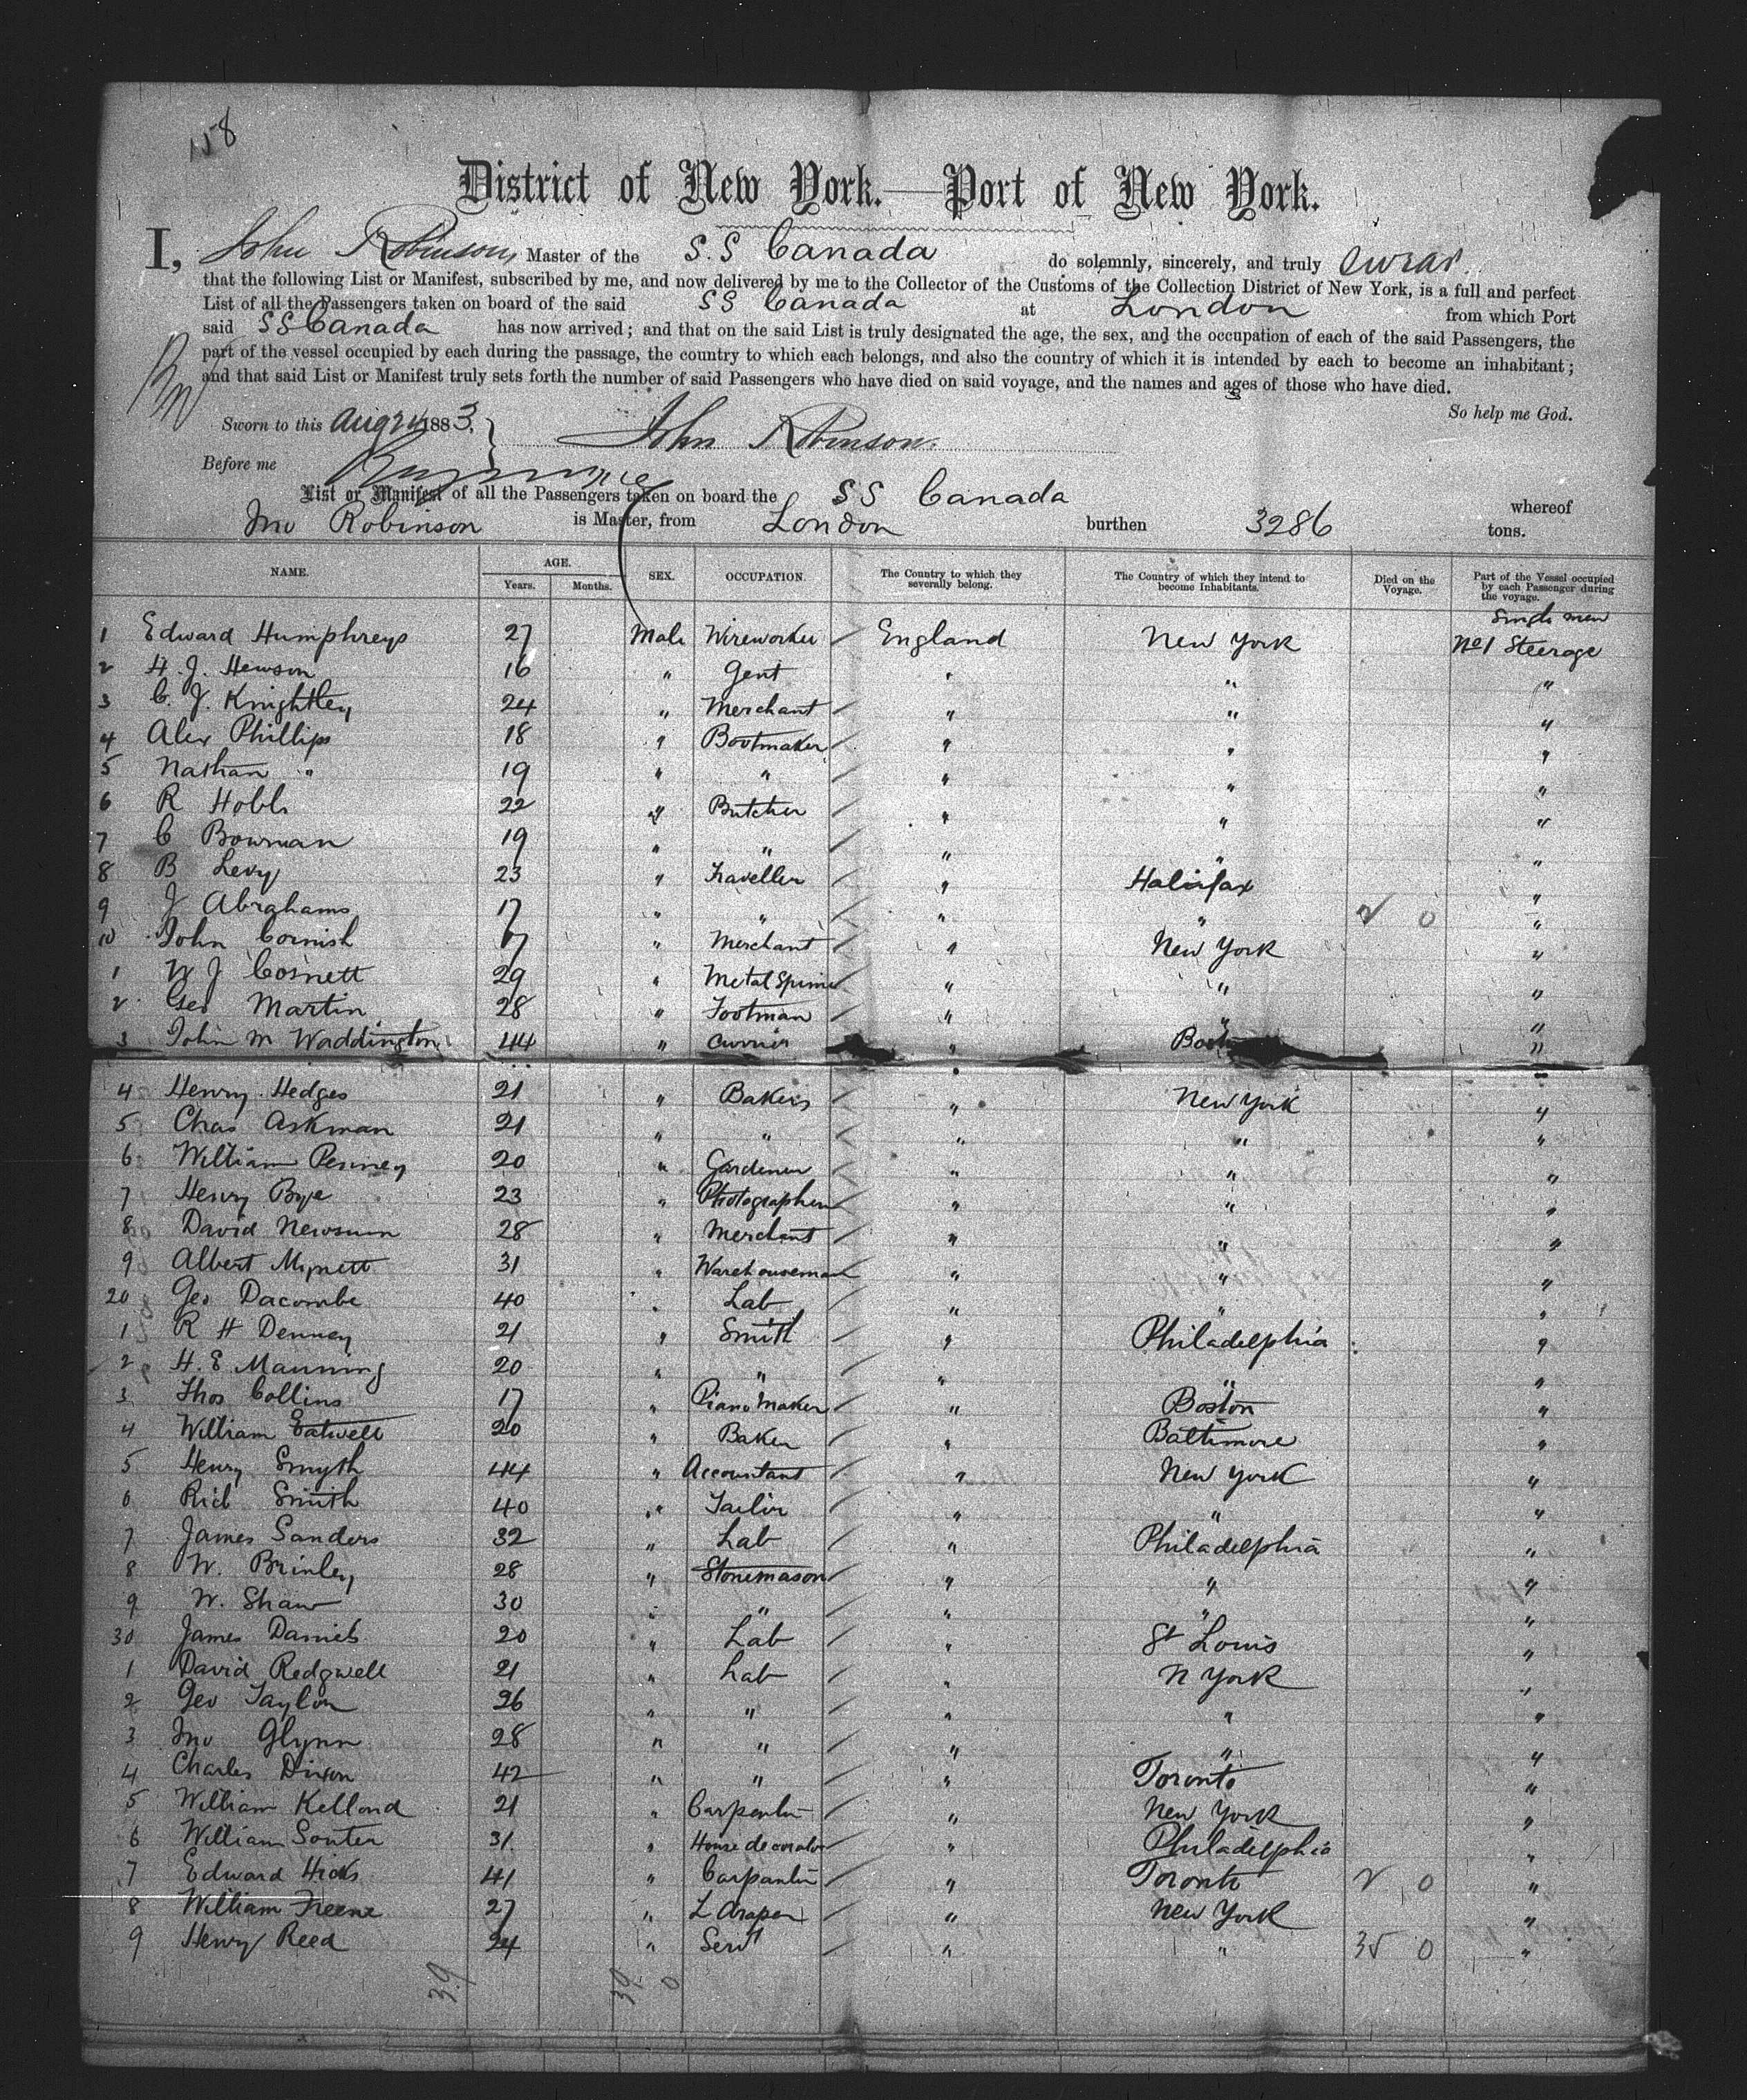 158
District of New York.—Port of New York.
I, John Robinson, Master of the S.S Canada do solemnly, sincerely, and truly swear
that the following List or Manifest, subscribed by me, and now delivered by me to the Collector of the Customs of the Collection District of New York, is a full and perfect
List of all the Passengers taken on board of the said SS Canada at London from which Port
said SS Canada has now arrived; and that on the said List is truly designated the age, the sex, and the occupation of each of the said Passengers, the
part of the vessel occupied by each during the passage, the country to which each belongs, and also the country of which it is intended by each to become an inhabitant;
and that said List or Manifest truly sets forth the number of said Passengers who have died on said voyage, and the names and ages of those who have died.
So help me God.
Sworn to this Aug 24 1883, John Robinson.
Before me
List or Manifest of all the Passengers taken on board the SS Canada whereof
Jno Robinson is Master, from London burthen 3286 tons.
NAME. AGE. Years. Months. SEX. OCCUPATION. The Country to which they severally belong. The Country of which they intend to become Inhabitants. Died on the Voyage. Part of the Vessel occupied by each Passenger during the voyage.
Single men
1 Edward Humphreys 27 Male Wireworker / England New York No 1 Steerage
2 H. J. Hewson 16 " Gent " " "
3 C. J. Knightley 24 " Merchant / " " "
4 Alex Phillips 18 " Bootmaker / " " "
5 Nathan " 19 " " / " " "
6 R Hobbs 22 " Butcher / " " "
7 C Bowman 19 " " / " " "
8 B Levy 23 " Traveller / " Halifax "
9 J Abrahams 17 " " / " " 2 0 "
10 John Cornish 17 " Merchant / " New York "
1 W J Cosnett 29 " Metal Spinner / " " "
2 Geo Martin 28 " Footman / " " "
3 John M Waddington 44 " Currier " Boston "
4 Henry Hedges 21 " Bakers / " New York "
5 Chas Askman 21 " " / " " "
6 William Penney 20 " Gardener / " " "
7 Henry Bye 23 " Photographer / " " "
8 David Newsum 28 " Merchant / " " "
9 Albert Mynett 31 " Warehouseman / " " "
20 Geo Dacombe 40 " Lab / " " "
1 R H Denney 21 " Smith / " Philadelphia "
2 H. E Manning 20 " " / " " "
3 Thos Collins 17 " Piano Maker / " Boston "
4 William Eatwell 20 " Baker / " Baltimore "
5 Henry Smyth 44 " Accountant / " New York "
6 Rich Smith 40 " Tailor / " " "
7 James Sanders 32 " Lab / " Philadelphia "
8 W. Brinley 28 " Stonemason / " " "
9 W. Shaw 30 " " / " " "
30 James Daniels 20 " Lab / " St Louis "
1 David Redgwell 21 " Lab / " N York "
2 Geo Taylor 26 " " / " " "
3 Jno Glynn 28 " " / " " "
4 Charles Dixon 42 " " / " Toronto "
5 William Kelland 21 " Carpenter / " New York "
6 William Souter 31 " House decorator / " Philadelphia "
7 Edward Hicks 41 " Carpenter / " Toronto 2 0 "
8 William Freene 27 " L draper / " New York "
9 Henry Reed 24 " Servt / " " 35 0 "
39 39 0